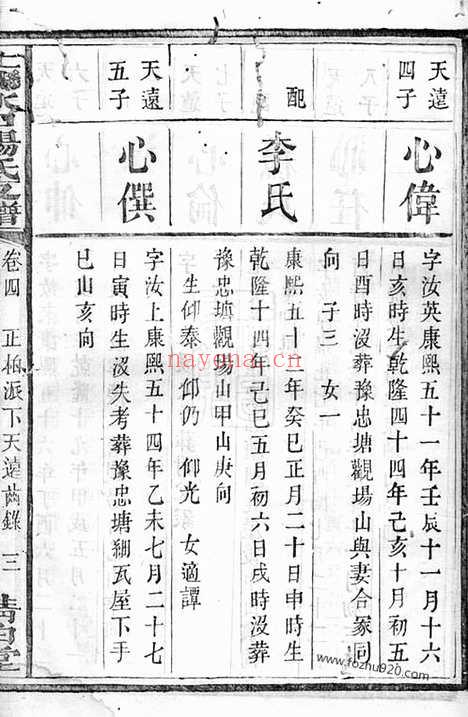 天遠
四子
心偉
字汝英康熙五十一年壬辰十一月十六
日亥時生乾隆四十四年己亥十月初五
日酉時沒葬豫忠塘觀場山與妻合冢同
向　子三　女一
配
李氏
康熙五十二年癸巳正月二十日申時生
乾隆十四年己巳五月初六日戌時沒葬
豫忠塘觀場山甲山庚向
生仰泰　仰仍　仰光　女適譚
天遠
五子
心僎
字汝上康熙五十四年乙未七月二十七
日寅時生沒失考葬豫忠塘綑瓦屋下手
巳山亥向
楊氏
譜
卷四
正柏派下天遠齒錄
三
清白堂
nayona.cn
www.fozhu920.com